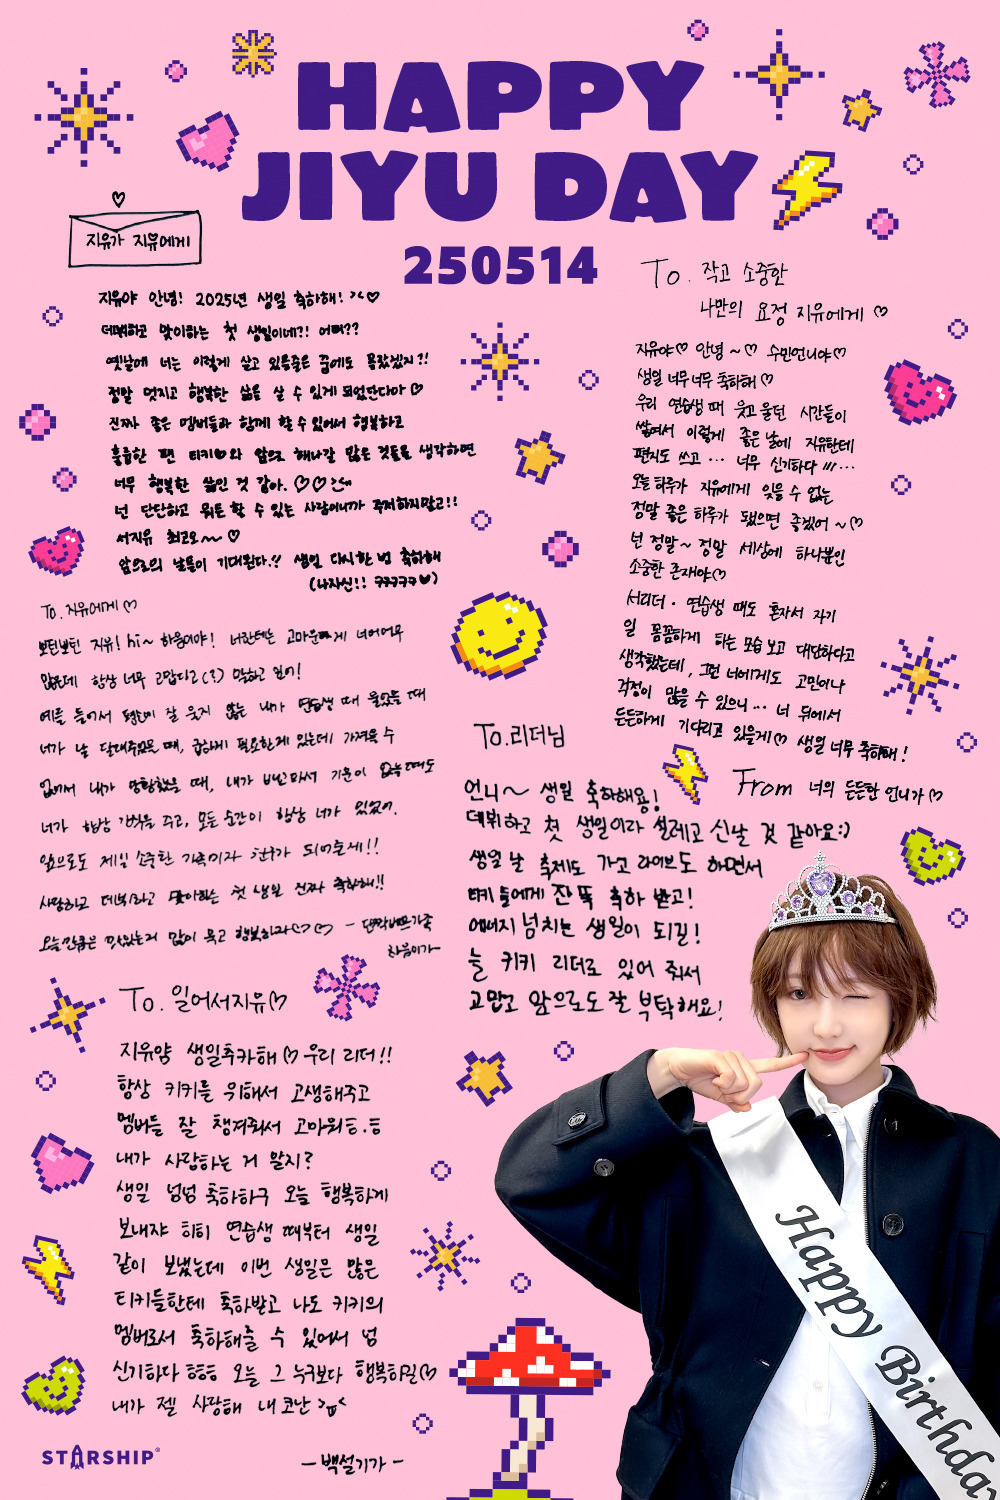 HAPPY
JIYU DAY
250514
지유가 지유에게
지유야 안녕! 2025년 생일 축하해! ><♡
데뷔하고 맞이하는 첫 생일이네?! 어때??
옛날에 너는 이렇게 살고 있을줄은 꿈에도 몰랐겠지?!
정말 멋지고 행복한 삶을 살 수 있게 되었단다아 ♡
진짜 좋은 멤버들과 함께 할 수 있어서 행복하고
훌륭한 팬 티키♡와 앞으로 해나갈 많은 것들을 생각하면
너무 행복한 삶인 것 같아. ♡♡
넌 단단하고 뭐든 할 수 있는 사람이니까 주저하지말고!!
서지유 최고오~~ ♡
앞으로의 날들이 기대된다.!! 생일 다시한번 축하해
(나자신!! ㅋㅋㅋㅋㅋ♥)
To. 작고 소중한
나만의 요정 지유에게 ♡
지유야♡ 안녕 ~♡ 수민언니야♡
생일 너무너무 축하해 ♡
우리 연습생 때 웃고 울던 시간들이
쌓여서 이렇게 좋은 날에 지유한테
편지도 쓰고 ... 너무 신기하다 ///...
오늘 하루가 지유에게 잊을 수 없는
정말 좋은 하루가 됐으면 좋겠어 ~♡
넌 정말~ 정말 세상에 하나뿐인
소중한 존재야♡
서리더 · 연습생 때도 혼자서 자기
일 꼼꼼하게 하는 모습 보고 대단하다고
생각했는데, 그런 너에게도 고민이나
걱정이 많을 수 있으니 ... 너 뒤에서
든든하게 기다리고 있을게♡ 생일 너무 축하해!
From 너의 든든한 언니가 ♡
To. 지유에게 ♡
지유! hi~ 하음이야! 너한테는 고마운게 너어어무
많은데 항상 너무 고맙다고 말하고 있어!
예를 들어서 잘 웃지 않는 내가 연습생 때 울었을 때
너가 날 달래주었을 때, 급하게 필요한게 있는데 가져올 수
없어서 내가 당황했을 때, 내가 기운이 없을때도
너가 항상 주고, 모든 순간이 항상 너가 있었어.
앞으로도 제일 소중한 가족이자 친구가 되어줄게!!
사랑하고 데뷔하고 맞이하는 첫 생일 진짜 축하해!!
오늘만큼은 맛있는거 많이 먹고 행복하라♡♡
하음이가
To.리더님
언니~ 생일 축하해용!
데뷔하고 첫 생일이라 설레고 신날 것 같아요:)
생일 날 축제도 가고 라이브도 하면서
티키들에게 잔뜩 축하 받고!
에너지 넘치는 생일이 되길!
늘 키키 리더로 있어 줘서
고맙고 앞으로도 잘 부탁해요!
To. 일어서지유♡
지유얌 생일추카해♡ 우리 리더!!
항상 키키를 위해서 고생해주고
멤버들 잘 챙겨줘서 고마워ㅌ.ㅌ
내가 사랑하는 거 알지?
생일 넘넘 축하하구 오늘 행복하게
보내쟈 히티 연습생 때부터 생일
같이 보냈는데 이번 생일은 많은
티키들한테 축하받고 나도 키키의
멤버로서 축하해줄 수 있어서 넘
신기하다 ㅎㅎㅎ 오늘 그 누구보다 행복하길♡
내가 젤 사랑해 내 코난
- 백설기가 -
STARSHIP®
Happy Birthday